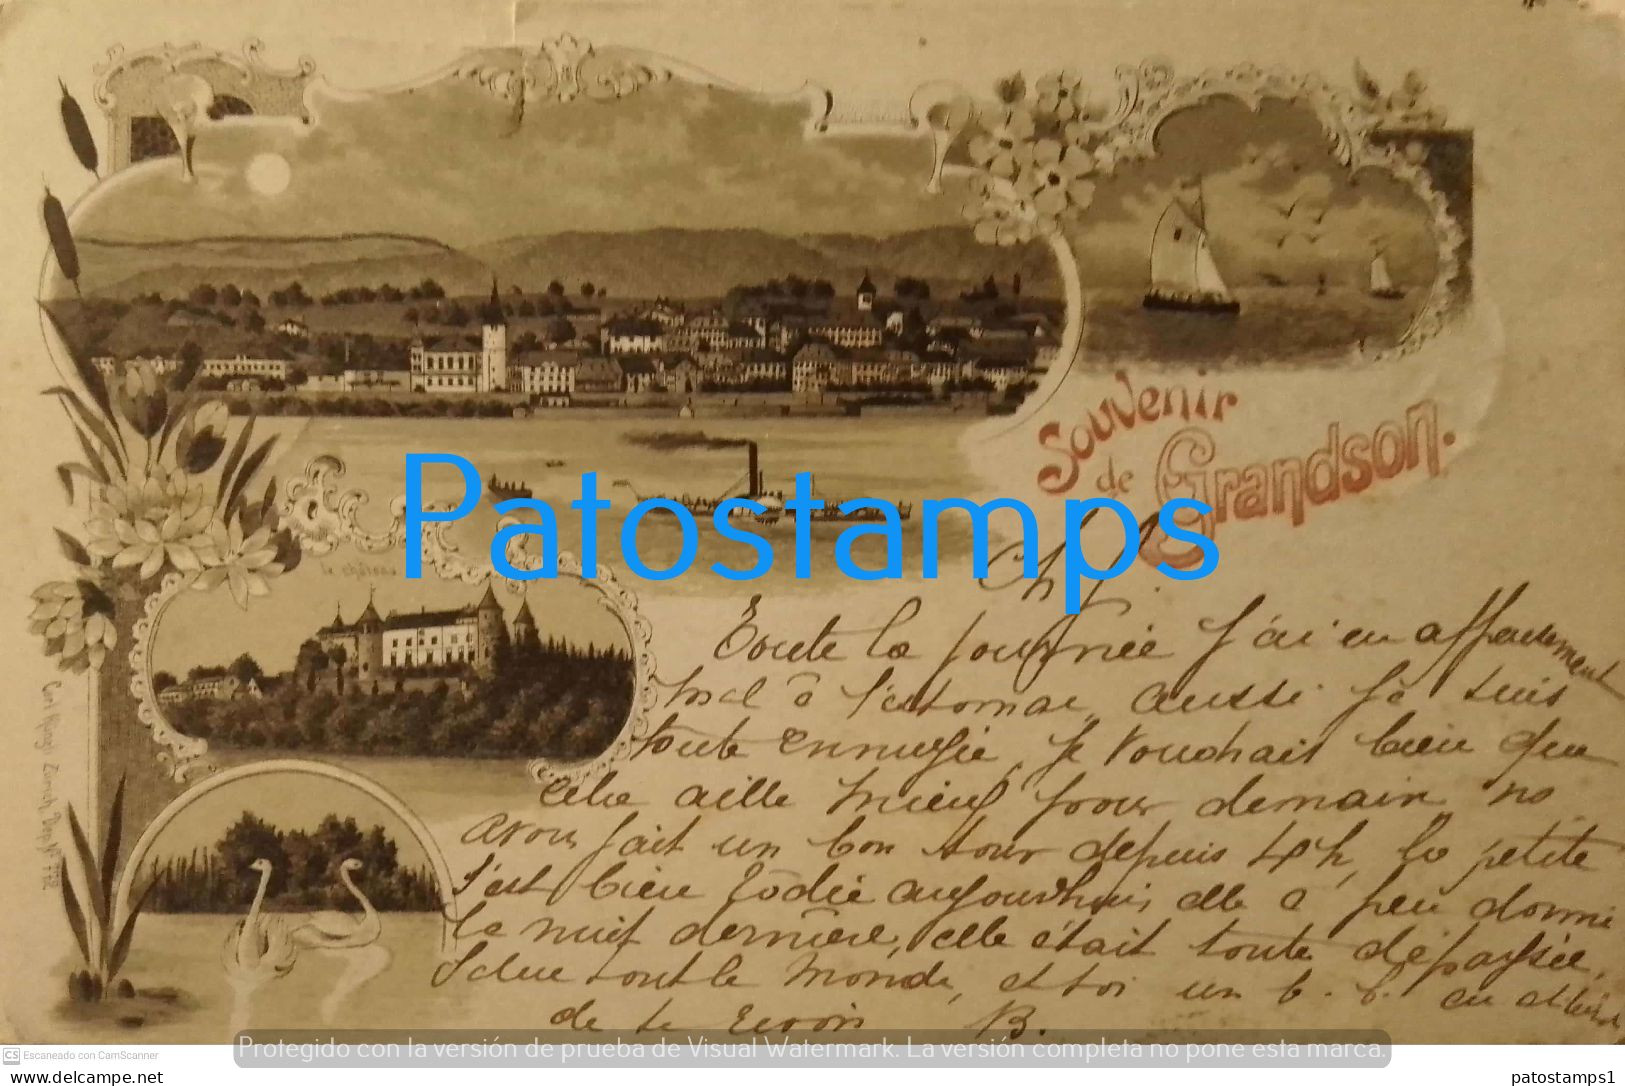 Souvenir
de Grandson.
le château
Patostamps
Ch J.
Toute la journée j'ai eu affreusement
mal à l'estomac aussi je suis
toute ennuyée, je voudrais bien que
cela aille mieux pour demain, ns
avons fait un bon tour depuis 4h, la petite
s'est bien aujourdhui, elle a peu dormi
la nuit dernière, elle était toute dépaysée,
Salue tout le monde, et toi un b. b. en
de te revoir B.
Carl Künzli Zürich, Dep. Nº
Protegido con la versión de prueba de Visual Watermark. La versión completa no pone esta marca.
CS Escaneado con CamScanner
www.delcampe.net
patostamps1